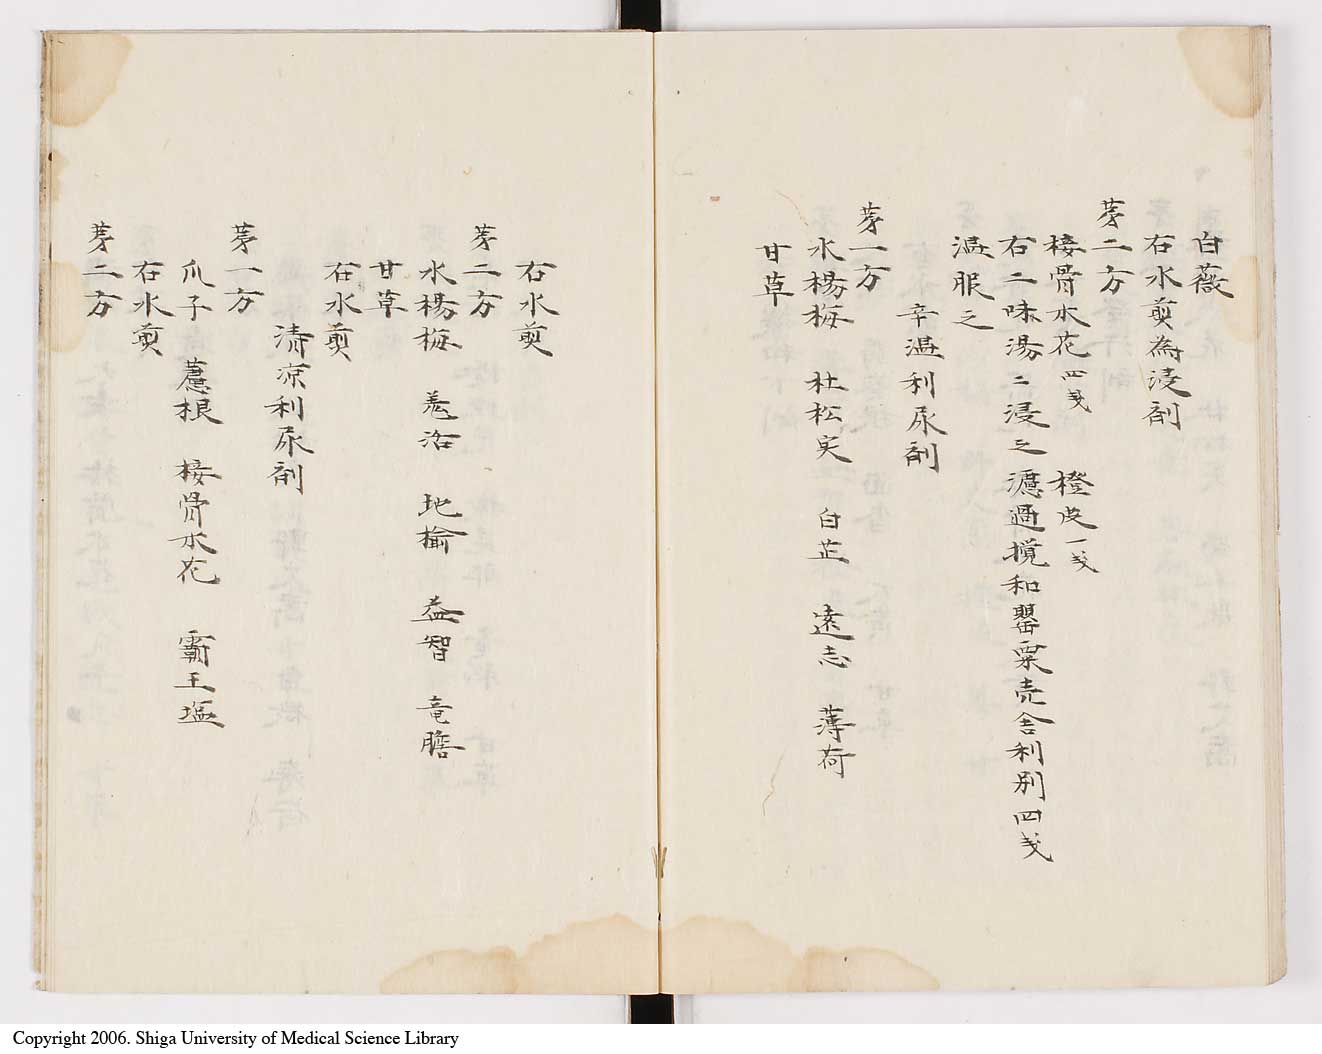 白薇
右水煎為浸剤
第二方
接骨木花 四戔 橙皮 一戔
右二味湯ニ浸之濾過攪和罌粟売舎利別四戔
温服之
辛温利尿剤
第一方
水楊梅 杜松実 白芷 遠志 薄荷
甘草
右水煎
第二方
水楊梅 羌活 地楡 益智 竜膽
甘草
右水煎
清凉利尿剤
第一方
爪子 蘆根 接骨木花 覇王塩
右水煎
第二方
Copyright 2006. Shiga University of Medical Science Library